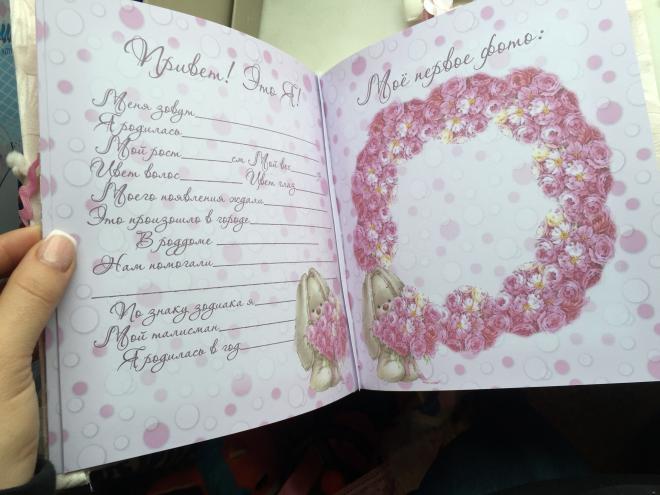 Привет! Это Я!
Меня зовут
Я родилась
Мой рост см Мой вес
Цвет волос Цвет глаз
Моего появления ждали
Это произошло в городе
В роддоме
Нам помогали
По знаку зодиака я
Мой талисман
Я родилась в год
Моё первое фото: